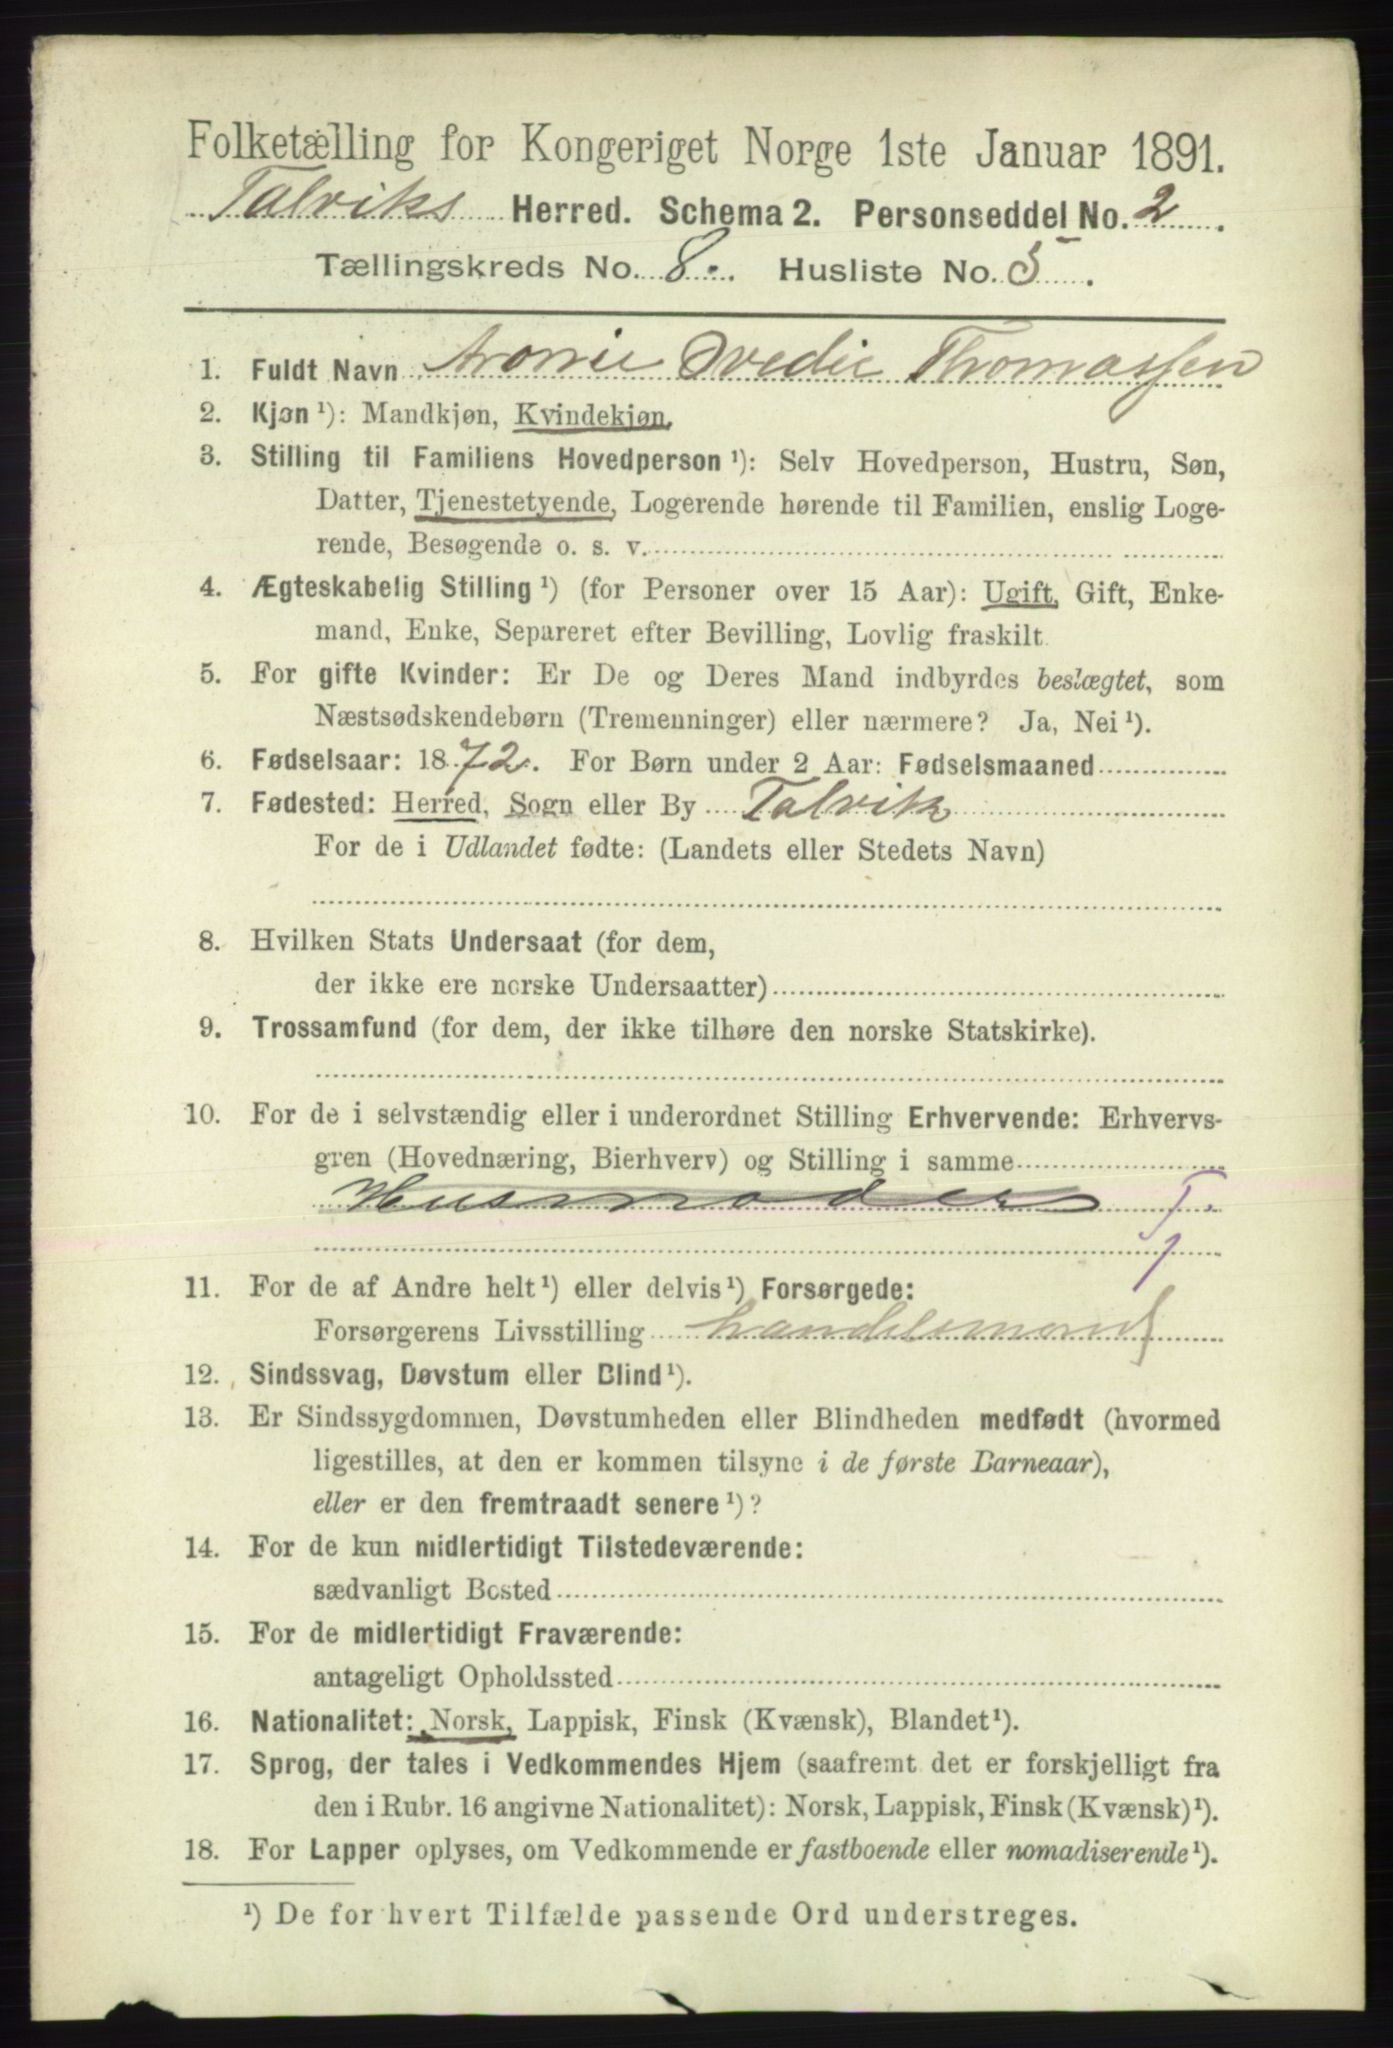 Folketælling for Kongeriget Norge 1ste Januar 1891.
Talviks Herred. Schema 2. Personseddel No. 2.
Tællingskreds No. 8. Husliste No. 5.
1. Fuldt Navn Thomassen
2. Kjøn ¹): Mandkjøn, Kvindekjøn,
3. Stilling til Familiens Hovedperson ¹): Selv Hovedperson, Hustru, Søn,
Datter, Tjenestetyende, Logerende hørende til Familien, enslig Loge-
rende, Besøgende o. s. v.
4. Ægteskabelig Stilling ¹) (for Personer over 15 Aar): Ugift, Gift, Enke-
mand, Enke, Separeret efter Bevilling, Lovlig fraskilt
5. For gifte Kvinder: Er De og Deres Mand indbyrdes beslægtet, som
Næstsødskendebørn (Tremenninger) eller nærmere? Ja, Nei ¹).
6. Fødselsaar: 1872. For Børn under 2 Aar: Fødselsmaaned
7. Fødested: Herred, Sogn eller By Talvik
For de i Udlandet fødte: (Landets eller Stedets Navn)
8. Hvilken Stats Undersaat (for dem,
der ikke ere norske Undersaatter)
9. Trossamfund (for dem, der ikke tilhøre den norske Statskirke).
10. For de i selvstændig eller i underordnet Stilling Erhvervende: Erhvervs-
gren (Hovednæring, Bierhverv) og Stilling i samme
Husmoder T.
1
11. For de af Andre helt ¹) eller delvis ¹) Forsørgede:
Forsørgerens Livsstilling handelsmand
12. Sindssvag, Døvstum eller Blind ¹).
13. Er Sindssygdommen, Døvstumheden eller Blindheden medfødt (hvormed
ligestilles, at den er kommen tilsyne i de første Barneaar),
eller er den fremtraadt senere ¹)?
14. For de kun midlertidigt Tilstedeværende:
sædvanligt Bosted
15. For de midlertidigt Fraværende:
antageligt Opholdssted
16. Nationalitet: Norsk, Lappisk, Finsk (Kvænsk), Blandet ¹).
17. Sprog, der tales i Vedkommendes Hjem (saafremt det er forskjelligt fra
den i Rubr. 16 angivne Nationalitet): Norsk, Lappisk, Finsk (Kvænsk) ¹).
18. For Lapper oplyses, om Vedkommende er fastboende eller nomadiserende ¹).
¹) De for hvert Tilfælde passende Ord understreges.